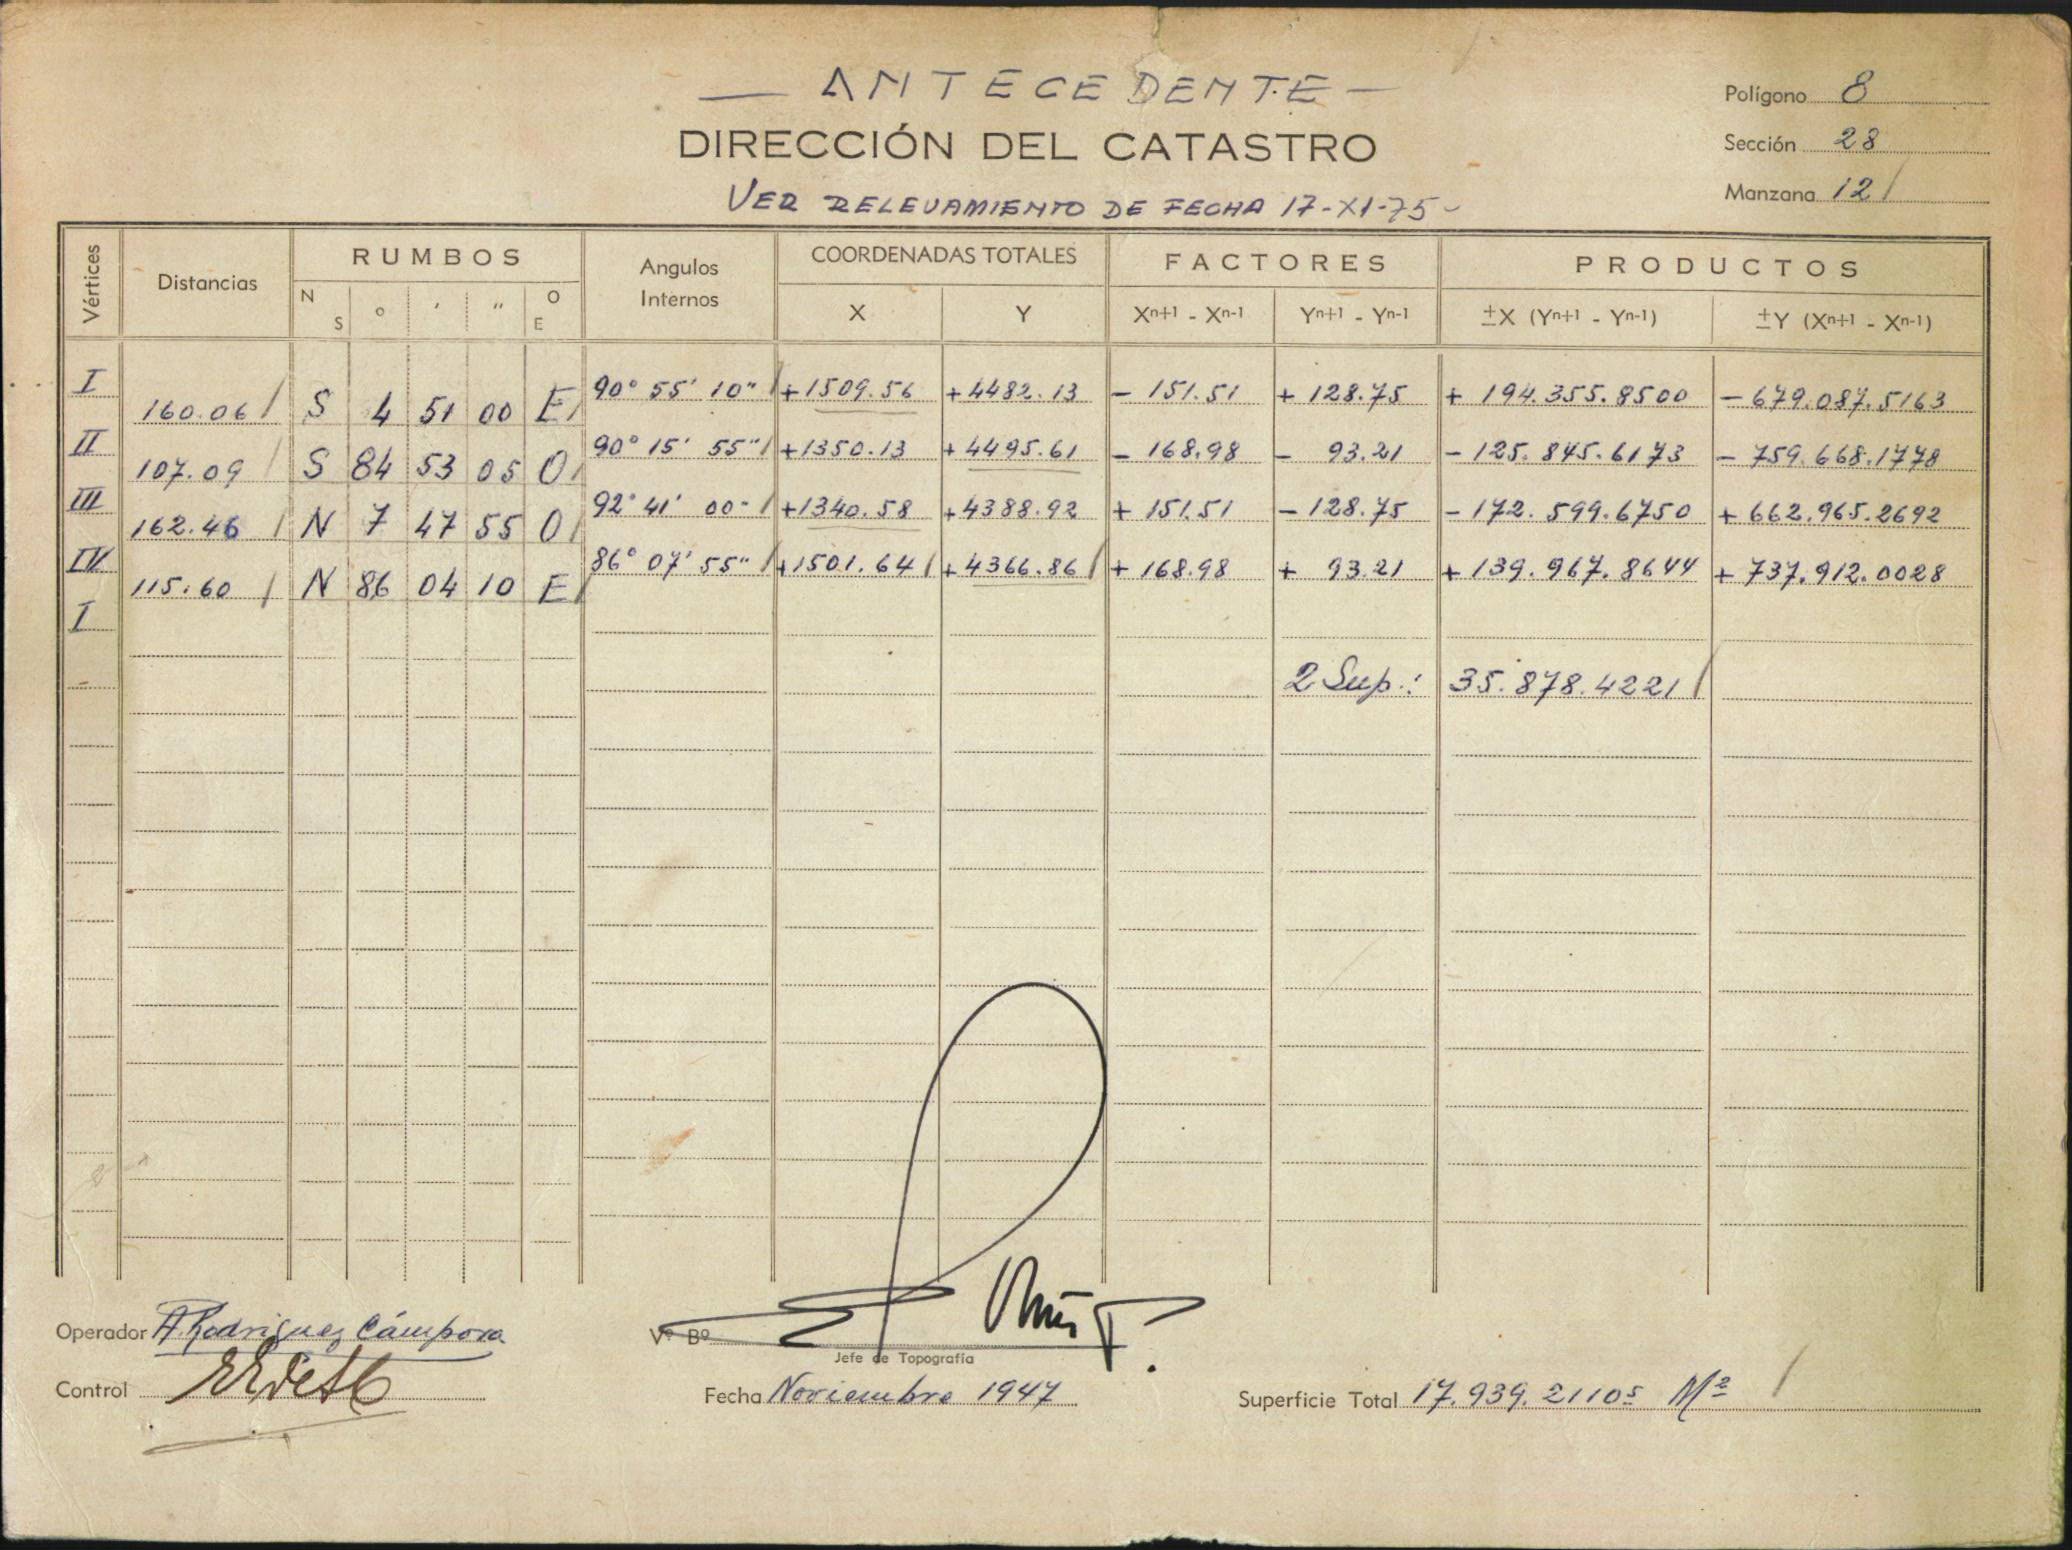 — ANTECEDENTE —
DIRECCIÓN DEL CATASTRO
VER RELEVAMIENTO DE FECHA 17-XI-75-
Polígono 8
Sección 28
Manzana 12
Vértices Distancias RUMBOS Angulos Internos COORDENADAS TOTALES FACTORES PRODUCTOS
N S ° ' " O E X Y Xn+1 - Xn-1 Yn+1 - Yn-1 ±X (Yn+1 - Yn-1) ±Y (Xn+1 - Xn-1)
I 90° 55' 10" +1509.56 +4482.13 - 151.51 + 128.75 + 194.355.8500 - 679.087.5163
160.06 S 4 51 00 E
II 90° 15' 55" +1350.13 +4495.61 - 168.98 - 93.21 - 125.845.6173 - 759.668.1778
107.09 S 84 53 05 O
III 92° 41' 00" +1340.58 +4388.92 + 151.51 - 128.75 - 172.599.6750 + 662.965.2692
162.46 N 7 47 55 O
IV 86° 07' 55" +1501.64 +4366.86 + 168.98 + 93.21 + 139.967.8644 + 737.912.0028
115.60 N 86 04 10 E
I
2 Sup.: 35.878.4221
Operador A. Rodriguez Cámpora
Vº Bº
Jefe de Topografía
Control
Fecha Noviembre 1947
Superficie Total 17.939.21105 M2